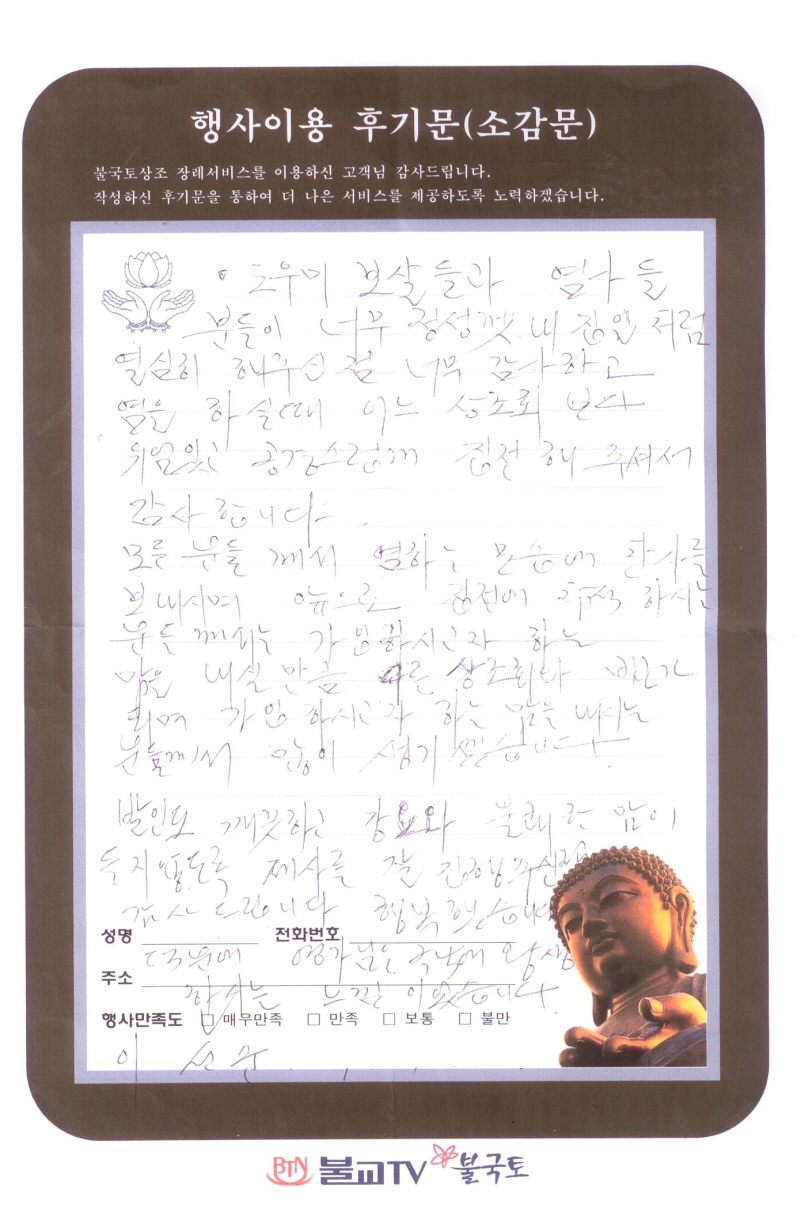 행사이용 후기문(소감문)
불국토상조 장례서비스를 이용하신 고객님 감사드립니다.
작성하신 후기문을 통하여 더 나은 서비스를 제공하도록 노력하겠습니다.
· 도우미 보살들과 염사들
분들이 너무 정성껏 내 집일 처럼
열심히 해주신점 너무 감사하고
염을 하실때 어느 상조회 보다
위엄있고 공경스럽게 집전 해 주셔서
감사 합니다.
모든 분들 께서 염하는 모습에 찬사를
보내시며 앞으로 집전에 참석 하시는
분들 께서는 가입하시고자 하는
맘을 내실 만큼 다른 상조회와 비교가
되며 가입 하시고자 하는 맘을 내시는
분들께서 많이 생기셨습니다.
발인도 깨끗하고 강요와 불쾌한 맘이
들지 않도록 제사를 잘 진행해주신점
감사 드립니다 행복했습니다
성명 전화번호
덕분에 영가님은 극락에 왕생
주소
하시는 느낌 이었습니다.
행사만족도 □ 매우만족 □ 만족 □ 보통 □ 불만
이
BTN 불교TV 불국토